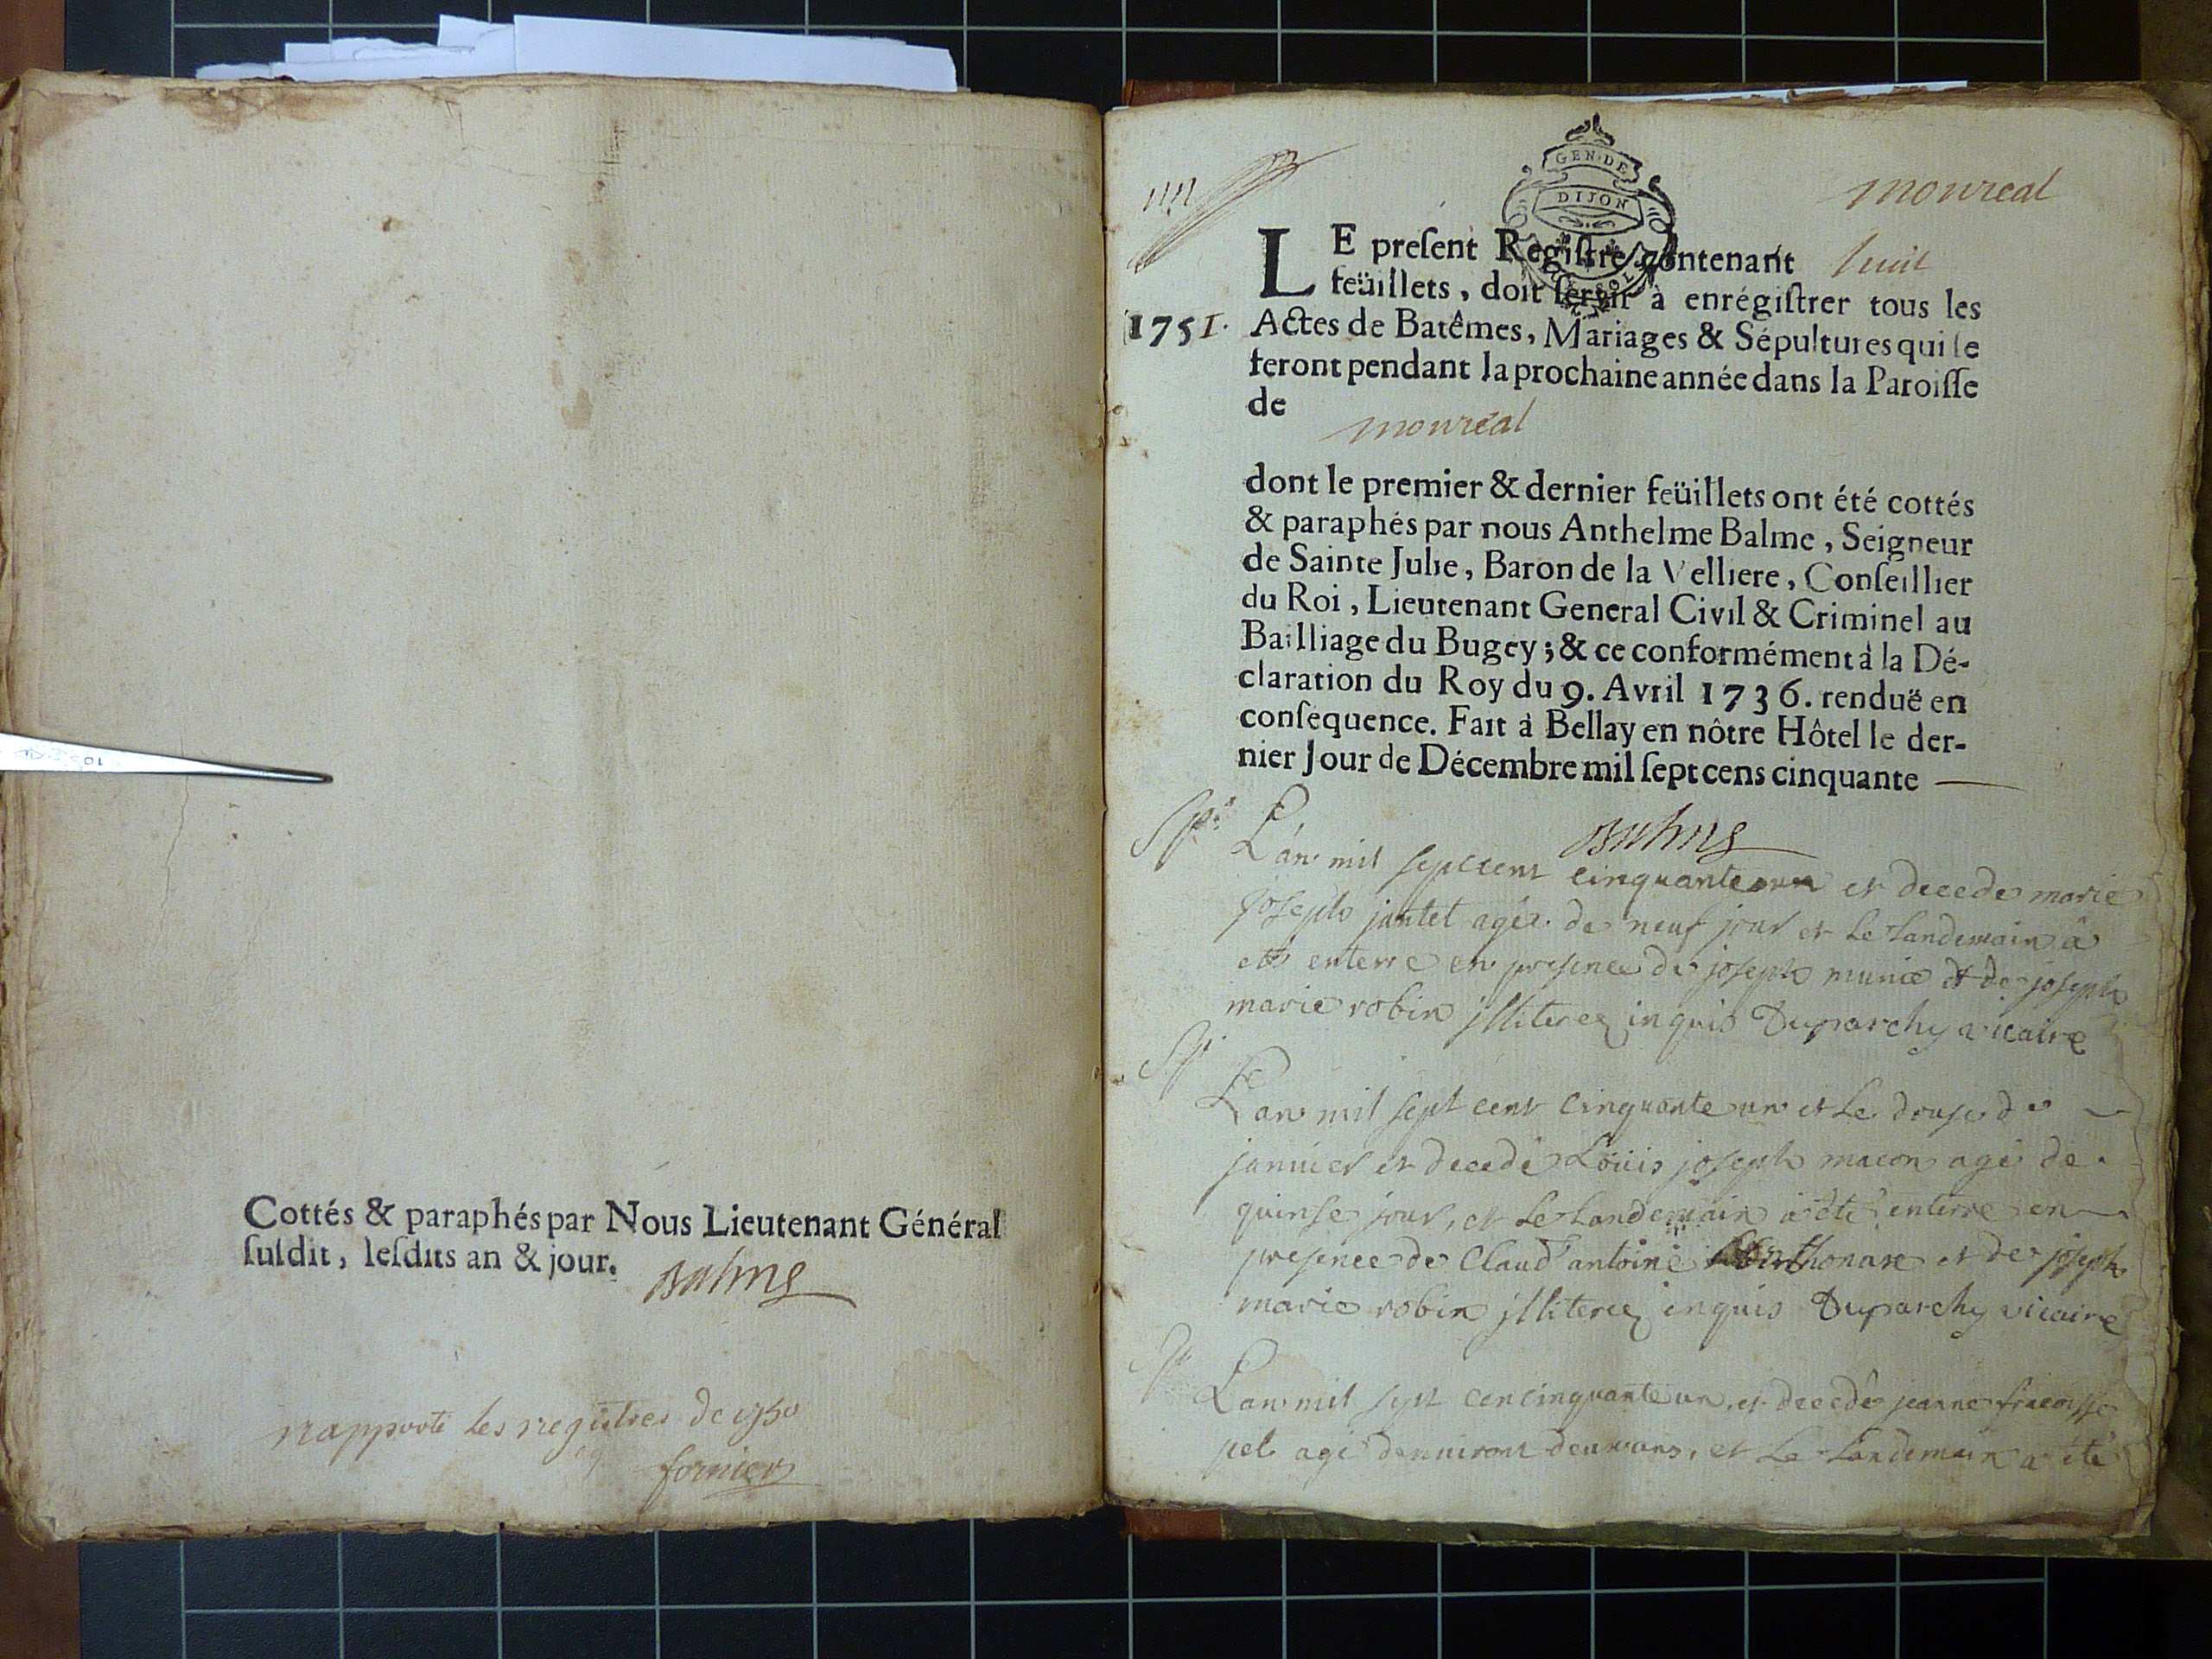 Cottés & paraphés par Nous Lieutenant Général
ſuſdit, leſdits an & jour.
Balme
rapporté les registres de 1750
fornier
monreal
GEN·DE
DIJON
LE preſent Regiſtre contenant huit
feüillets, doit ſervir à enrégiſtrer tous les
1751. Actes de Batêmes, Mariages & Sépultures qui ſe
feront pendant la prochaine année dans la Paroiſſe
de
monreal
dont le premier & dernier feüillets ont été cottés
& paraphés par nous Anthelme Balme, Seigneur
de Sainte Julie, Baron de la Velliere, Conſeillier
du Roi, Lieutenant General Civil & Criminel au
Bailliage du Bugey; & ce conformément à la Dé-
claration du Roy du 9. Avril 1736. renduë en
conſequence. Fait à Bellay en nôtre Hôtel le der-
nier Jour de Décembre mil ſept cens cinquante
Balme
L'an mil sept cent cinquante un et decede marie
joseph jantet agée de neuf jour et le landemain a
eté enterre en presence de joseph munié et de joseph
marie robin jlliterez inquis Duparchy vicaire
L'an mil sept cent cinquante un et le douse de
janvier et decedé Loüis joseph macon agé de
quinse jour, et le landemain a eté enterre en
presence de Claud antoine et de joseph
marie robin jlliterez inquis Duparchy vicaire
L'an mil sept cen cinquante un, et decedé jeanne
agé denviront deux ans, et le landemain a été